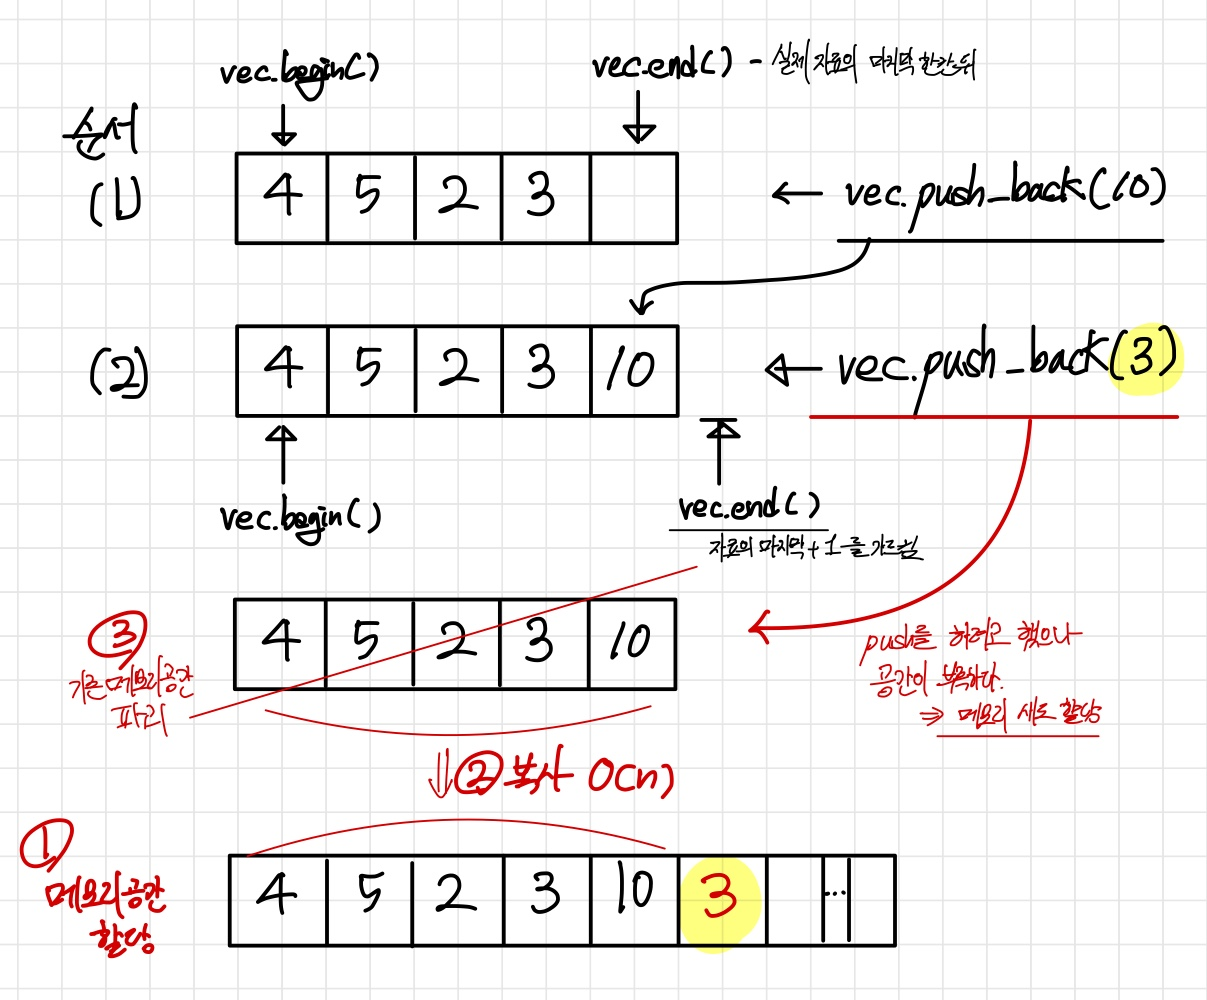 vec.begin()
vec.end() - 실제 자료의 마지막 한칸 뒤
순서
(1)
4 5 2 3
← vec.push_back(10)
(2)
4 5 2 3 10
← vec.push_back(3)
vec.begin()
vec.end()
자료의 마지막 + 1를 가르킴
③
기존 메모리 공간
파괴
4 5 2 3 10
push를 하려고 했으나
공간이 부족하다.
⇒ 메모리 새로 할당
② 복사 O(n)
①
메모리 공간
할당
4 5 2 3 10 3 ...